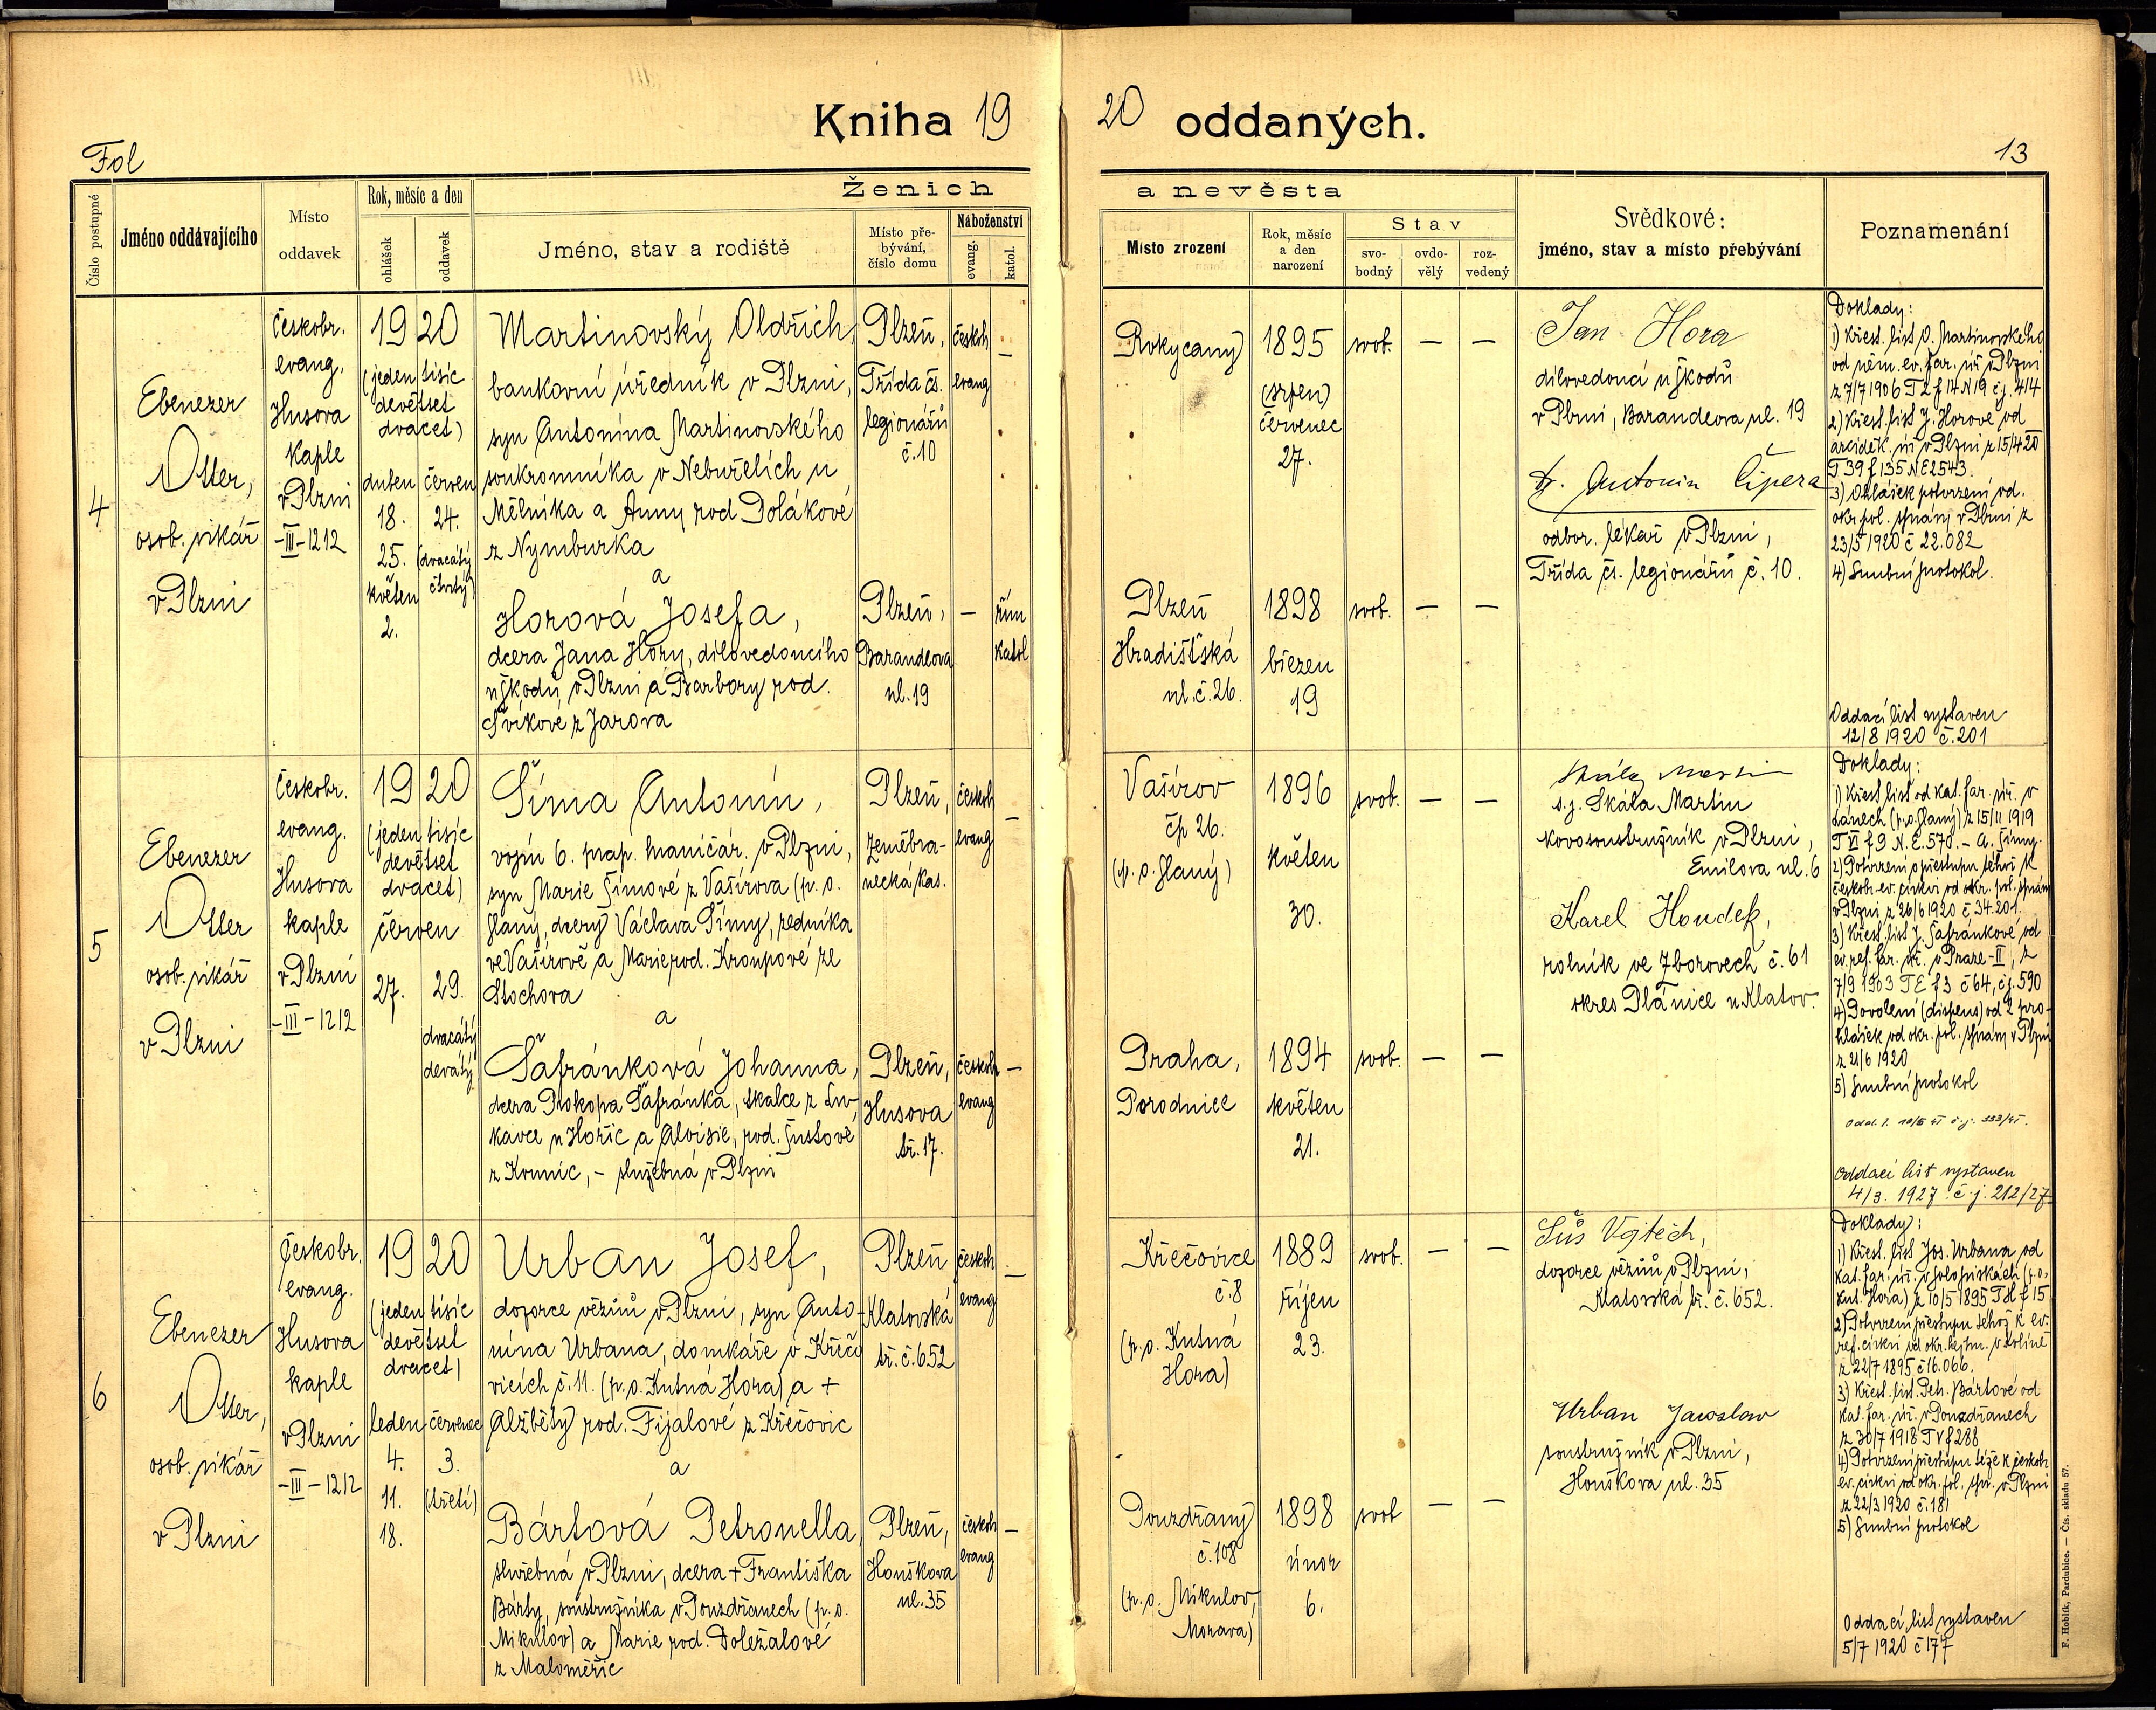 Kniha 19 20 oddaných.
Fol
13
Číslo postupné
Jméno oddávajícího
Místo
oddavek
Rok, měsíc a den
ohlášek
oddavek
Ženich
Jméno, stav a rodiště
Místo pře-
bývání,
číslo domu
Náboženství
evang.
katol.
a nevěsta
Místo zrození
Rok, měsíc
a den
narození
Stav
svo-
bodný
ovdo-
vělý
roz-
vedený
Svědkové:
jméno, stav a místo přebývání
Poznamenání
4
Ebenezer
Otter,
osob. vikář
v Plzni
Českobr.
evang.
Husova
kaple
v Plzni
-III-1212
1920
(jeden tisíc
devětset
dvacet)
duben
18.
25.
květen
2.
červen
24.
(dvacátý
čtvrtý)
Martinovský Oldřich,
bankovní úředník v Plzni,
syn Antonína Martinovského
soukromníka v Nebuželích u
Mělníka a Anny rod Polákové
z Nymburka
a
Horová Josefa,
dcera Jana Hory, dílovedoucího
u Škodů v Plzni a Barbory rod.
Švíkové z Jarova
Plzeň,
Třída čs.
legionářů
č.10
českob
evang
—
Plzeň,
Barandeova
ul. 19
—
řím
katol
Rokycany
1895
(srpen)
červenec
27.
svob. — —
Plzeň
Hradišťská
ul. č. 26.
1898
březen
19
svob. — —
Jan Hora
dílovedoucí u Škodů
v Plzni, Barandeova ul. 19
Dr. Antonín Čipera
odbor. lékař v Plzni,
Třída čs. legionářů č. 10.
Doklady:
1) Křest. list O. Martinovského
od něm. ev. far. úř v Plzni
z 7/7 1906 T 2 f 14 N 19 č.j. 414
2) Křest. list J. Horové od
arciděk. úř v Plzni z 15/4 20
T 39 f 135 N E 2543.
3) Ohlášek potvrzení od.
okr. pol. správy v Plzni z
23/5 1920 č 22.082
4) Snubní protokol.
Oddací list vystaven
12/8 1920 č. 201
5
Ebenezer
Otter
osob. vikář
v Plzni
Českobr.
evang.
Husova
kaple
v Plzni
-III-1212
1920
(jeden tisíc
devětset
dvacet)
červen
27.
29.
dvacátý
devátý
Šíma Antonín,
vojín 6. prap. hraničář. v Plzni,
syn Marie Šímové z Vašírova (p. o.
Slaný, dcery Václava Šímy, zedníka
ve Vašírově a Marie rod. Kroupové ze
Stochova
a
Šafránková Johanna,
dcera Prokopa Šafránka, tkalce z Lu-
kavce u Hořic a Aloisie, rod. Šustové
z Konnic, – služebná v Plzni
Plzeň,
Zeměbra-
necká kas.
českob
evang
—
Plzeň,
Husova
tř. 17.
českob
evang
—
Vašírov
čp 26.
(p. o. Slaný)
1896
květen
30.
svob. — —
Praha,
Porodnice
1894
květen
21.
svob. — —
Skála Martin
s. j. Skála Martin
kovosoustružník v Plzni,
Emilova ul. 6
Karel Houdek,
rolník ve Zborovech č. 61
okres Plánice u Klatov.
Doklady:
1) Křest list od kat. far. úř. v
Lánech (p. o. Slaný) z 15/11 1919
T VI f 9 N. E. 570. – A. Šímy.
2) Potvrzení o přestupu téhož k
českobr. ev. církvi od okr. pol. správy
v Plzni z 26/6 1920 č 34.201.
3) Křest. list J. Šafránkové od
ev. ref. far. úř. v Praze-II, z
7/9 1903 T E f 3 č 64, č.j. 590
4) Povolení (dispens) od 2 pro-
hlášek od okr. pol. správy v Plzni
z 21/6 1920
5) Snubní protokol
Oddací list vystaven
4/3. 1927 č. j. 212/27.
6
Ebenezer
Otter,
osob. vikář
v Plzni
Českobr.
evang.
Husova
kaple
v Plzni
-III-1212
1920
(jeden tisíc
devětset
dvacet)
leden
4.
11.
18.
červenec
3.
(třetí)
Urban Josef,
dozorce vězňů v Plzni, syn Anto-
nína Urbana, domkáře v Křečo
vicích č. 11. (p. o. Kutná Hora) a +
Alžběty rod. Fijalové z Křečovic
a
Bártová Petronella,
služebná v Plzni, dcera + Františka
Bárty, soustružníka v Pouzdřanech (p. o.
Mikulov) a Marie rod. Doležalové
z Maloměřic
Plzeň
Klatovská
tř. č. 652
českob
evang
—
Plzeň,
Houškova
ul. 35
českob
evang
—
Křečovice
č. 8
(p. o. Kutná
Hora)
1889
říjen
23.
svob. — —
Pouzdřany
č. 108
(p. o. Mikulov,
Morava)
1898
únor
6.
svob — —
Suš Vojtěch,
dozorce vězňů v Plzni,
Klatovská tř. č. 652.
Urban Jaroslav
soustružník v Plzni,
Houškova ul. 35
Doklady:
1) Křest. list Jos. Urbana od
kat. far. úř. v (p. o.
Kut. Hora) z 10/5 1895 T H f 15
2) Potvrzení přestupu téhož k ev.
ref. církvi od okr. hejtm. v Kolíně
z 22/7 1895 č 16.066.
3) Křest. list. Petr. Bártové od
kat. far. úř. v Pouzdřanech
z 30/7 1918 T V f 288
4) Potvrzení přestupu téže k českob
ev. církvi od okr. pol. spr. v Plzni
z 22/3 1920 č. 181
5) Snubní protokol
Oddací list vystaven
5/7 1920 č 177
F. Hoblík, Pardubice. — Čís. skladu 57.